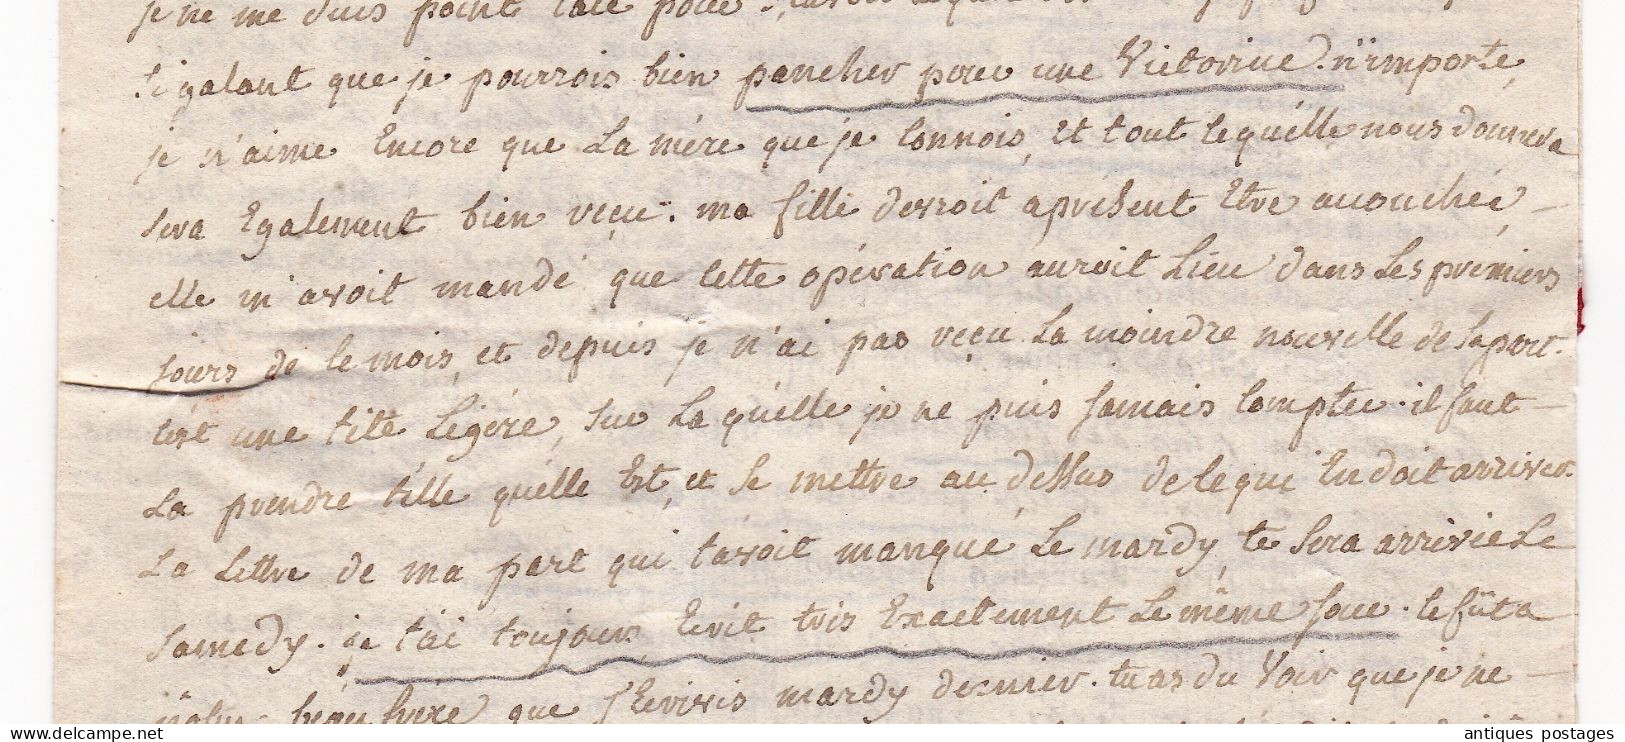 je ne me suis point
si galant que je pourrois bien pancher pour une Victorine. n'importe,
je n'aime Encore que La mére que je connois, Et tout ce quélle nous donnera
sera Egalement bien reçu. ma fille devroit aprésent Etre acouchée
elle m'avoit mandé que cette opération auroit Lieu dans Les prémiers
jours de ce mois, et depuis je n'ai pas reçu La moindre nouvelle de sa part.
c'est une tête Légére, sur La quélle je ne puis jamais compter. il faut
La prendre télle quélle Est, et se mettre au dessus de ce qui En doit arriver.
La Lettre de ma part qui t'avoit manqué Le mardy, te sera arrivée Le
samedy. je t'ai toujours Ecrit très Exactement Le même jour. ce fût a
beau frere que j'Ecrivis mardy dernier. tu as du Voir que je ne
antiques postages